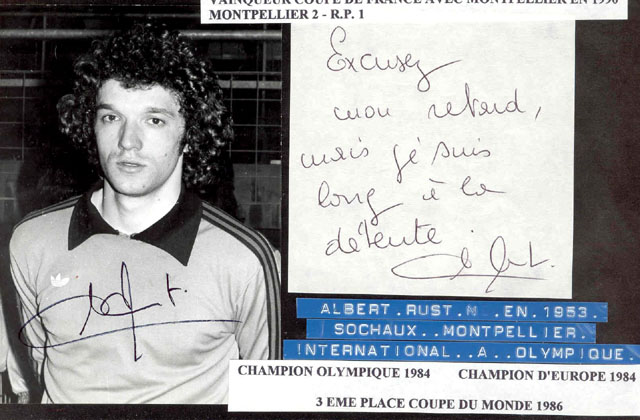 VAINQUEUR COUPE DE FRANCE AVEC MONTPELLIER EN 1990
MONTPELLIER 2 - R.P. 1
Excusez
mon retard,
mais je suis
long à la
détente.
ALBERT.RUST.N .EN.1953.
SOCHAUX..MONTPELLIER.
INTERNATIONAL..A..OLYMPIQUE.
CHAMPION OLYMPIQUE 1984 CHAMPION D'EUROPE 1984
3 EME PLACE COUPE DU MONDE 1986